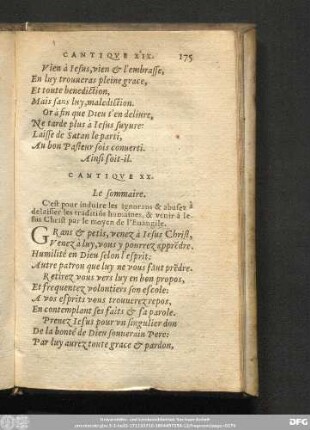 CANTIQVE XIX. 175
Vien à Iesus, vien & l'embrasse,
En luy trouueras pleine grace,
Et toute benediction,
Mais sans luy, malediction.
Or à fin que Dieu t'en deliure,
Ne tarde plus à Iesus suyure:
Laisse de Satan le parti,
Au bon Pasteur sois conuerti.
Ainsi soit-il.
CANTIQVE XX.
Le sommaire.
C'est pour induire les ignorans & abusez à
delaisser les traditiõs humaines, & venir à Ie-
sus Christ par le moyen de l'Euangile.
GRans & petis, venez à Iesus Christ,
Venez à luy, vous y pourrez apprẽdre
Humilité en Dieu selon l'esprit:
Autre patron que luy ne vous faut prẽdre.
Retirez vous vers luy en bon propos,
Et frequentez volontiers son escole:
A vos esprits vous trouuerez repos,
En contemplant ses faits & sa parole.
Prenez Iesus pour vn singulier don
De la bonté de Dieu souuerain Pere:
Par luy aurez toute grace & pardon,
DFG